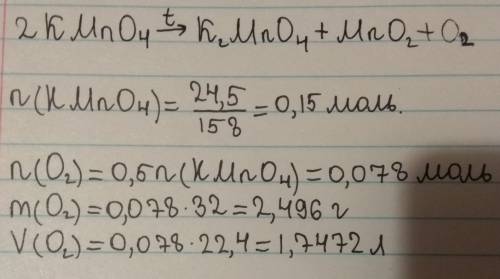 2KMnO₄ →ᵗ K₂MnO₄ + MnO₂ + O₂
n(KMnO₄) = 24,5/158 = 0,15 моль.
n(O₂) = 0,5n(KMnO₄) = 0,078 моль
m(O₂) = 0,078·32 = 2,496 г
V(O₂) = 0,078·22,4 = 1,7472 л